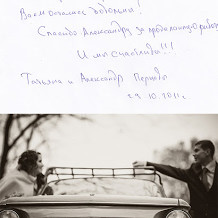 Вам остались довольны!
Спасибо Александру за проделанную работу
И мы счастливы!!!
Татьяна и Александр
29.10.2011г.